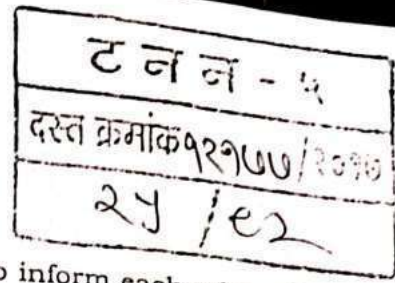 ट न न - ५
दस्त क्रमांक १२१७७/२०१७
२५ / ९२
inform